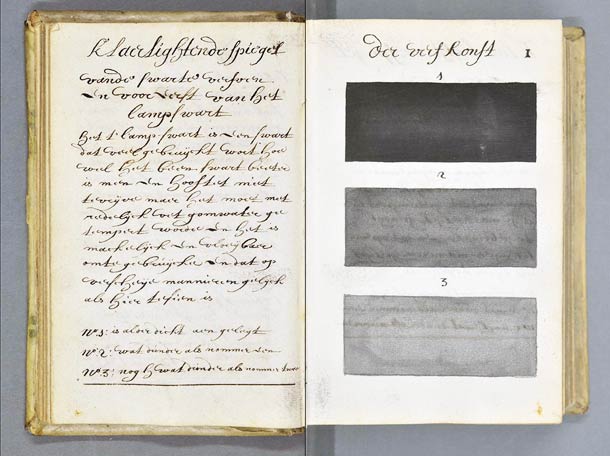 Klaerlightende spiegel
vande swarte verfven
en voor eerst van het
lampswart
Het t lampswart is een swart
dat veel gebruijckt wort hoe
wel het been swart beeter
is men en hooft et niet
te vrijve maer het moet met
redelijck vet gomwater ge
tempert worde en het is
mackelijck en vloeijbaer
om te gebruijcke en dat op
verscheije mannieren gelijck
als hier te sien is
No 1: is alder dickt aen gelegt
No 2: wat dunder als nommer een
No 3: nog wat dunder als nommer twee
der verf konst 1
1
2
3